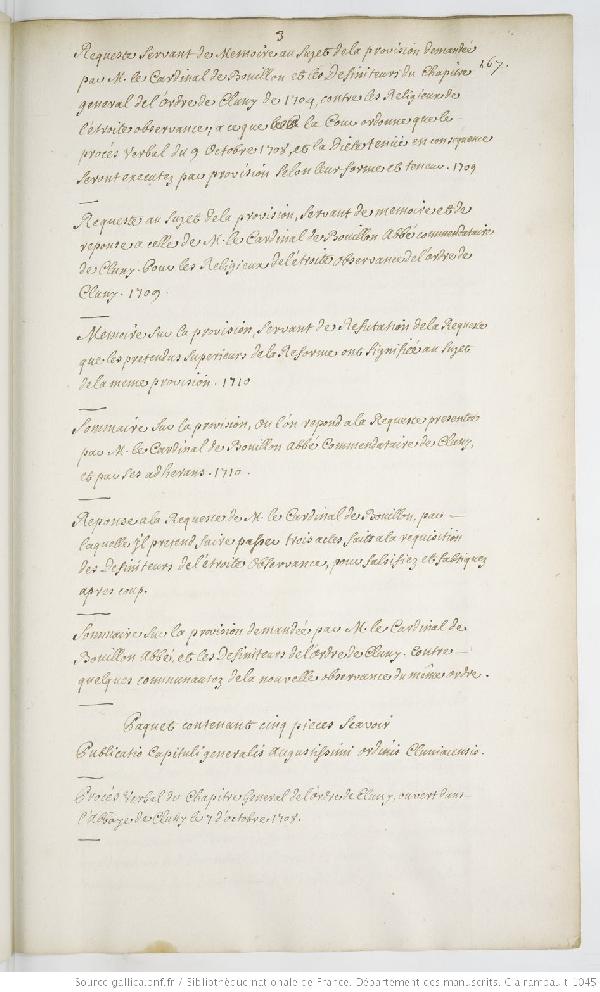 3
167.
Requeste servant de Memoire au sujet de la provision demandée
par M. le Cardinal de Bouillon et les Definiteurs du Chapitre
general de l'ordre de Cluny de 1704, contre les Religieux de
l'étroite observance, a ce que la Cour ordonne que le
procés verbal du 9 Octobre 1708, et la Diete tenüe en consequence
seront executez par provision selon leur forme et teneur. 1709
Requeste au sujet de la provision, servant de memoire et de
reponse a celle de M. le Cardinal de Bouillon Abbé commendataire
de Cluny. Pour les Religieux de l'étroite observance de l'ordre de
Cluny. 1709.
Memoire sur la provision, servant de Refutation de la Requeste
que les pretendus superieurs de la Reforme ont signifiée au sujet
de la meme provision. 1710
Sommaire sur la provision, ou l'on repond a la Requeste presentée
par M. le Cardinal de Bouillon Abbé Commendataire de Cluny,
et par ses adherans. 1710.
Reponse a la Requeste de M. le Cardinal de Bouillon, par
laquelle Il pretend faire passer trois actes, faits a la requisition
des Definiteurs de l'étroite Observance, pour falsifiez et fabriquez
apres coup.
Sommaire sur la provision demandée par M. le Cardinal de
Bouillon Abbé, et les Definiteurs de l'ordre de Cluny. Contre
quelques communautez de la nouvelle observance du même ordre.
Paquet contenant cinq pieces Scavoir
Publicatio Capituli generalis Augustissimi ordinis Cluniacensis.
Procés Verbal du Chapitre General de l'ordre de Cluny, ouvert dans
l'Abbaye de Cluny le 7 d'octobre 1708.
Source gallica.bnf.fr / Bibliothèque nationale de France. Département des manuscrits. Clairambault 1045